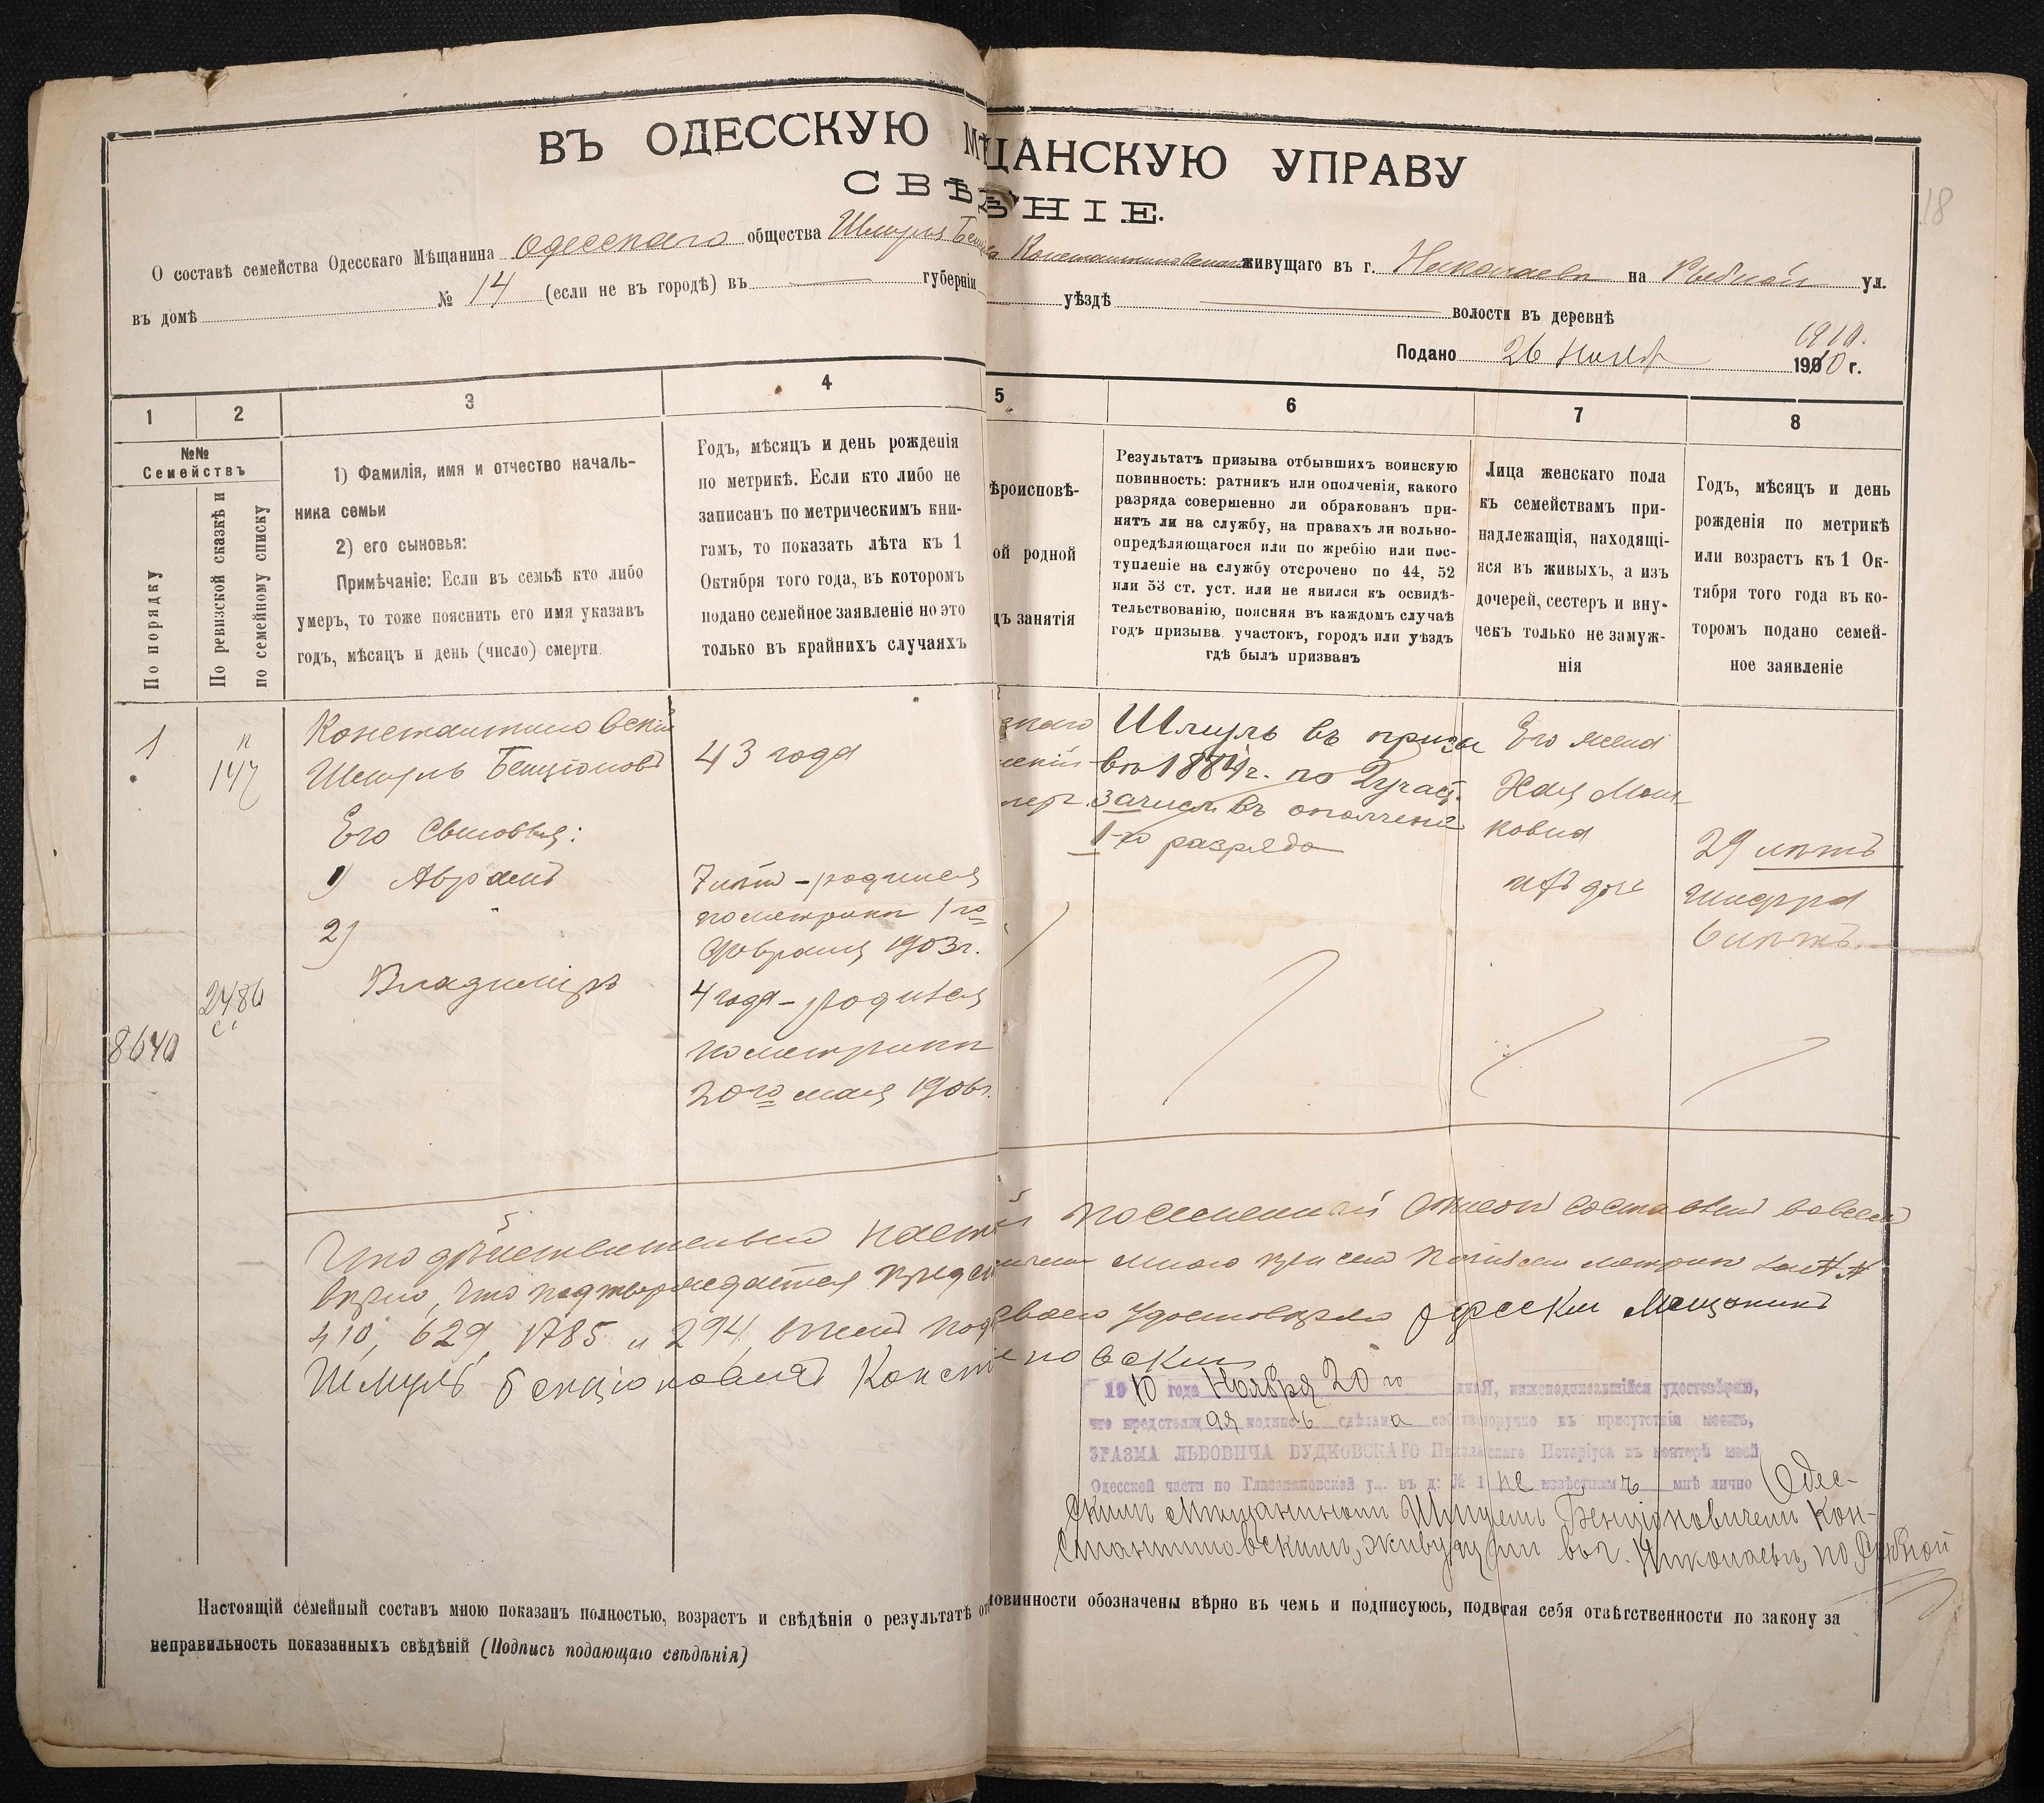 ВЪ ОДЕССКУЮ МѢЩАНСКУЮ УПРАВУ
СВѢДѢНІЕ.
18
О составѣ семейства Одесскаго Мѣщанина одесскаго общества Шмуля Константиновскаго живущаго въ г. Николаевъ на Рыбной ул.
въ домѣ № 14 (если не въ городѣ) въ губерніи уѣздѣ волости въ деревнѣ
1910.
Подано 26 Ноября 1910 г.
1 2 3 4 5 6 7 8
№№
Семействъ
По порядку
По ревизской сказкѣ и
по семейному списку
1) Фамилія, имя и отчество началь-
ника семьи
2) его сыновья:
Примѣчаніе: Если въ семьѣ кто либо
умеръ, то тоже пояснить его имя указавъ
годъ, мѣсяцъ и день (число) смерти.
Годъ, мѣсяцъ и день рожденія
по метрикѣ. Если кто либо не
записанъ по метрическимъ кни-
гамъ, то показать лѣта къ 1
Октября того года, въ которомъ
подано семейное заявленіе но это
только въ крайнихъ случаяхъ
ѣроисповѣ-
ой родной
дъ занятія
Результатъ призыва отбывшихъ воинскую
повинность: ратникъ или ополченія, какого
разряда совершенно ли обракованъ при-
нятъ ли на службу, на правахъ ли вольно-
опредѣляющагося или по жребію или пос-
тупленіе на службу отсрочено по 44, 52
или 53 ст. уст. или не явился къ освидѣ-
тельствованію, поясняя въ каждомъ случаѣ
годъ призыва участокъ, городъ или уѣздъ
гдѣ былъ призванъ
Лица женскаго пола
къ семействамъ при-
надлежащія, находящі-
яся въ живыхъ, а изъ
дочерей, сестеръ и вну-
чекъ только не замуж-
нія
Годъ, мѣсяцъ и день
рожденія по метрикѣ
или возрастъ къ 1 Ок-
тября того года въ ко-
торомъ подано семей-
ное заявленіе
1
147
Константиновскій
Шмуль Бенціоновъ
Его Сыновья:
1) Абрамъ
2)
Владиміръ
2486
8640
43 года
7 лѣтъ – родился
по метрикѣ 1го
Февраля 1903г.
4 года – родился
по метрикѣ
20го мая 1906г.
Шмуль въ призы
въ 1884г. по 2 участ.
зачисл. въ ополченіе
1-го разряда
Его жена
Хая
ковна
ихъ дочь
29 лѣтъ
Шифра
6 лѣтъ.
Что дѣйствительно посемейный списокъ составленъ вовсемъ
вѣрно, что подтверждается мною при семъ метрик за № №
410, 629, 1785 и 294, въ чемъ удостовѣряю Одесскій Мещанинъ
Шмуль Бенціоновичъ Константиновскій
1910 года Ноября 20го дня Я, нижеподписавшійся удостовѣряю,
что предстоящая подпись сдѣлана собственноручно въ присутствіи моемъ,
ЭРАЗМА ЛЬВОВИЧА БУДКОВСКАГО Николаевскаго Нотаріуса въ конторѣ моей
Одесской части по Глазенаповской у.. въ д: № 1 не извѣстнымъ мнѣ лично Одес-
скимъ мѣщаниномъ Шмулемъ Бенціоновичемъ Кон-
стантиновскимъ, живущимъ въ г. Николаевѣ, по Рыбной
Настоящій семейный составъ мною показанъ полностью, возрастъ и свѣдѣнія о результатѣ от повинности обозначены вѣрно въ чемъ и подписуюсь, подвѣргая себя отвѣтственности по закону за
неправильность показанныхъ свѣдѣній (Подпись подающаго свѣдѣнія)